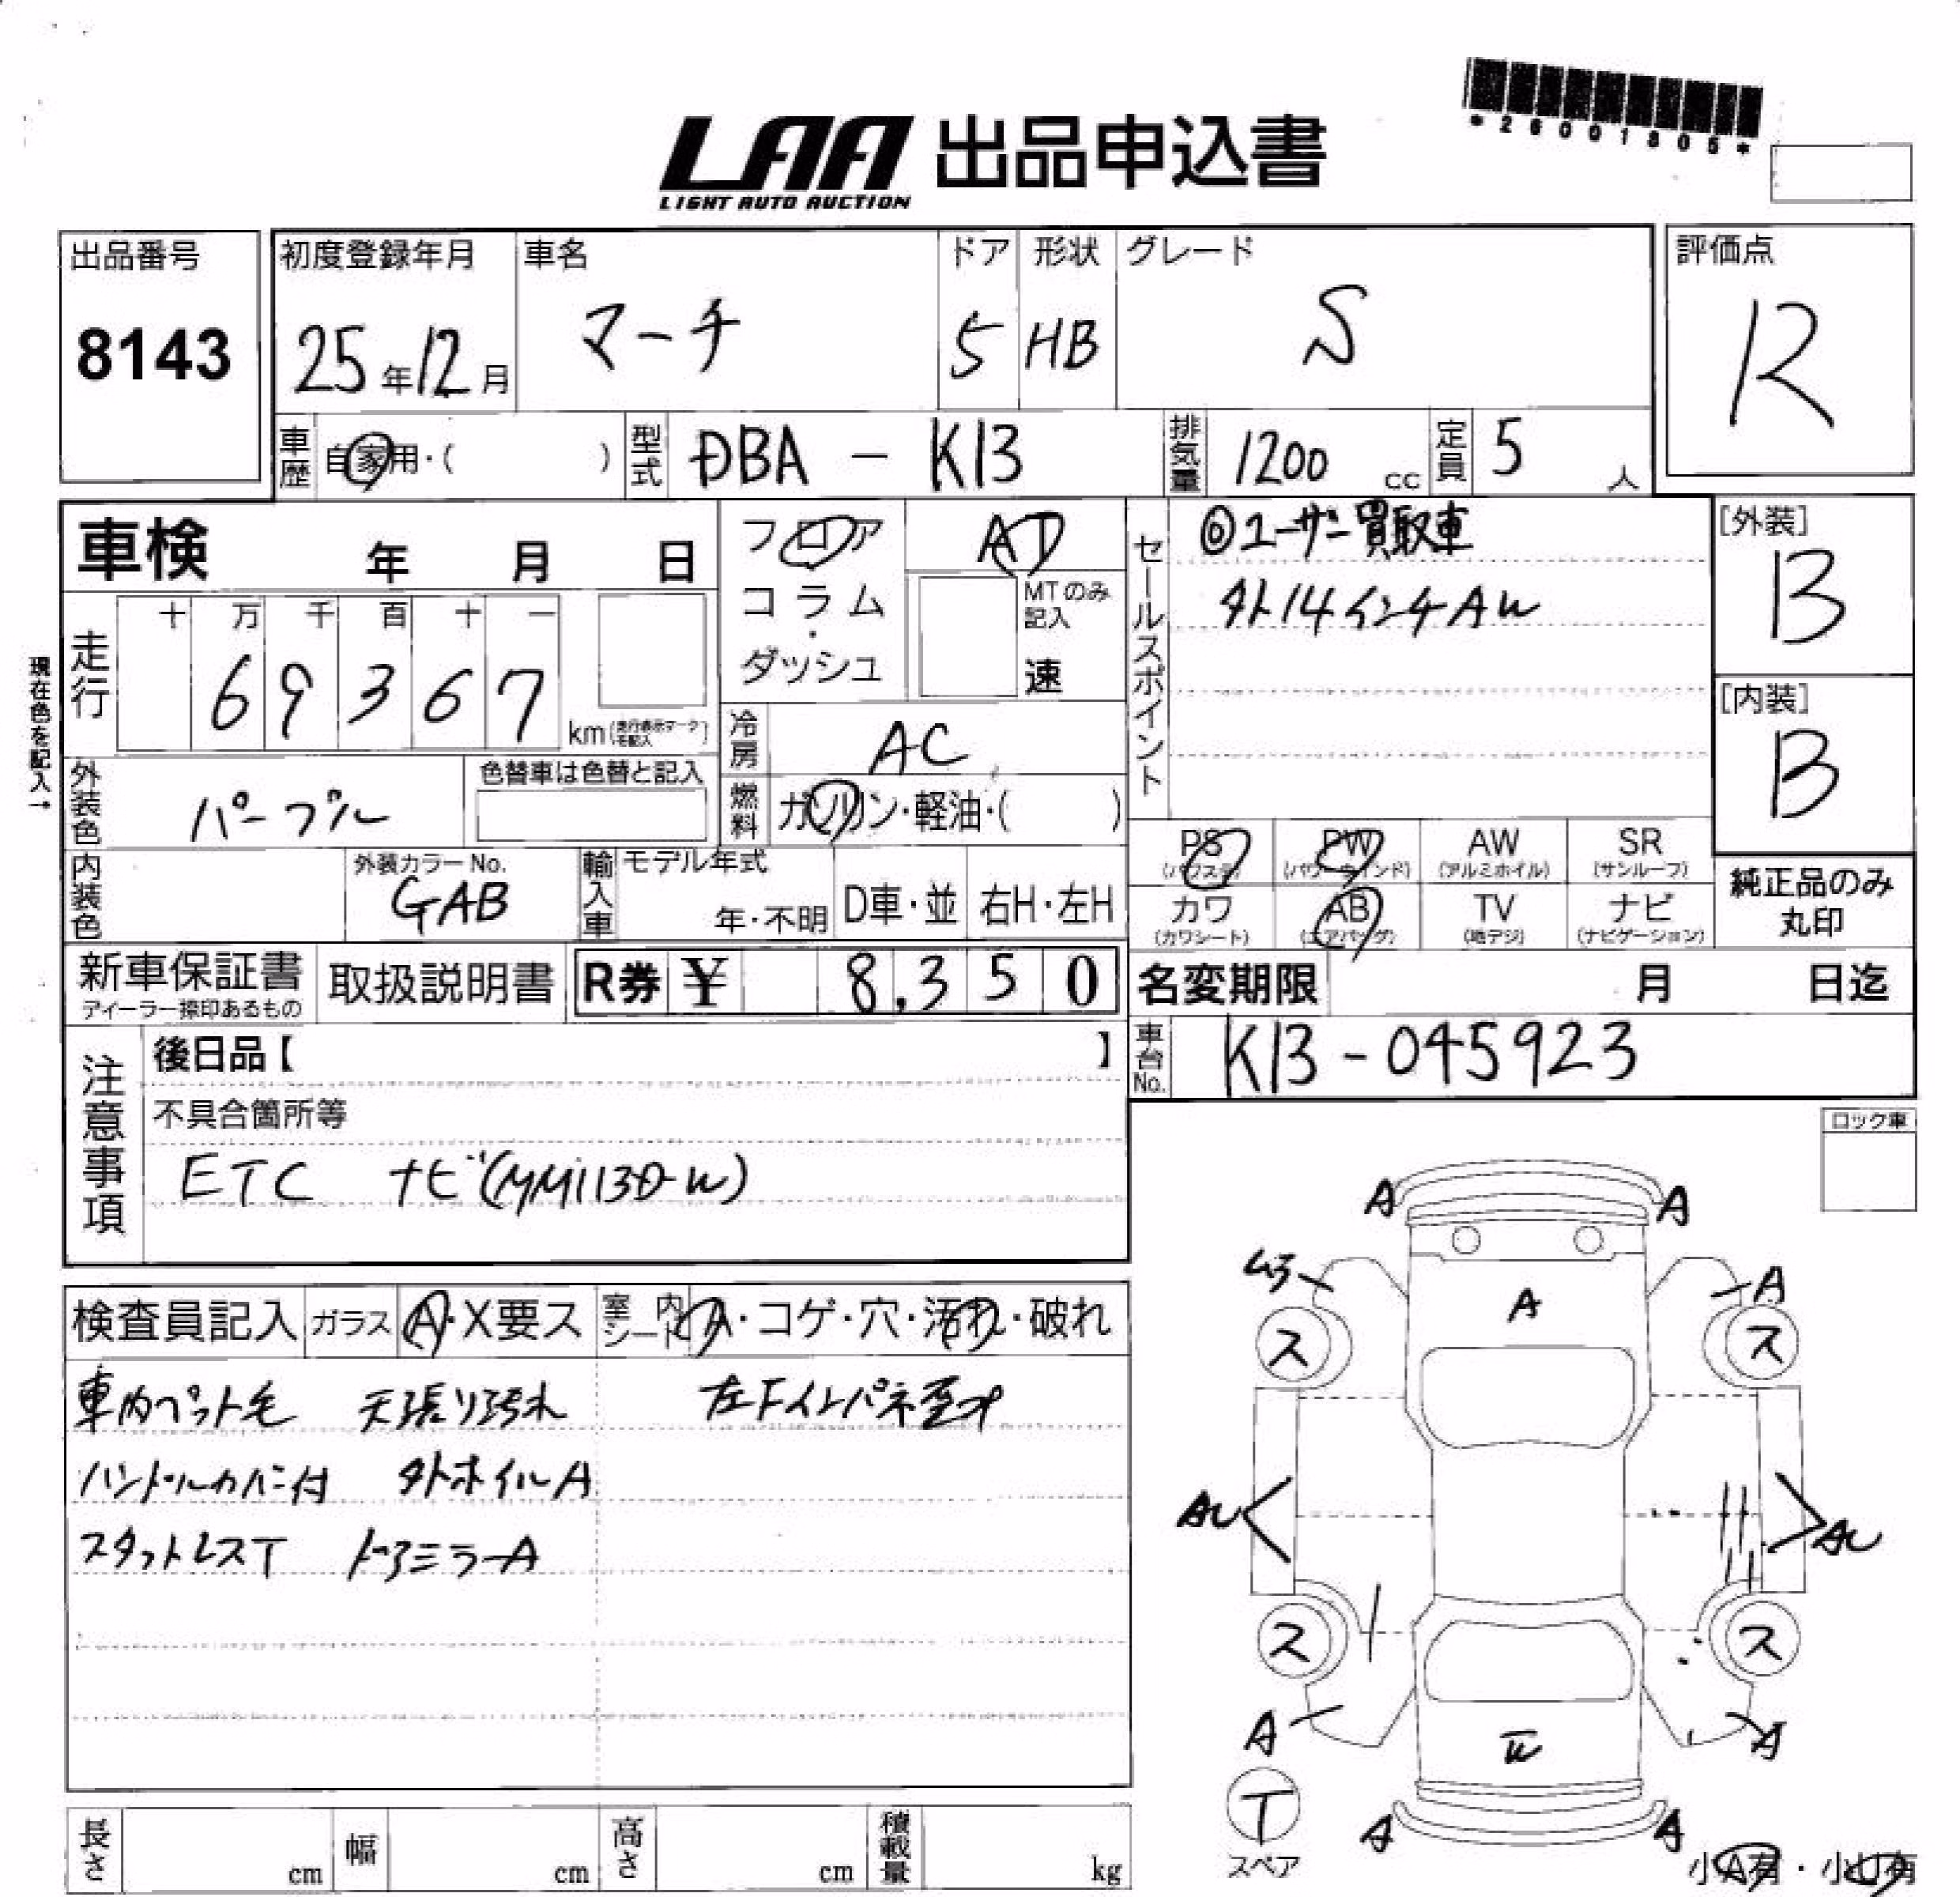 *26001805*
LAA 出品申込書
LIGHT AUTO AUCTION
出品番号
8143
初度登録年月
25年12月
車名
マーチ
ドア
5
形状
HB
グレード
S
評価点
R
車歴
自家用・( )
型式
DBA - K13
排気量
1200 cc
定員
5 人
車検 年 月 日
走行
十 万 千 百 十 一
6 9 3 6 7
km(走行表示マークを記入)
現在色を記入→
フロア
コラム
・
ダッシュ
AT
MTのみ記入
速
冷房
AC
燃料
ガソリン・軽油・( )
セールスポイント
◎ユーザー買取車
タト14インチAW
[外装]
B
[内装]
B
外装色
パープル
色替車は色替と記入
内装色
外装カラーNo.
GAB
輸入車
モデル年式
年・不明
D車・並
右H・左H
PS
(パワステ)
PW
(パワーウインド)
AW
(アルミホイル)
SR
(サンルーフ)
カワ
(カワシート)
AB
(エアバッグ)
TV
(地デジ)
ナビ
(ナビゲーション)
純正品のみ
丸印
新車保証書
ディーラー捺印あるもの
取扱説明書
R券 ¥ 8,350
名変期限 月 日迄
車台No.
K13-045923
注意事項
後日品【 】
不具合箇所等
ETC ナビ(MM113D-W)
ロック車
検査員記入
ガラス
A・X要ス
室内シート
A・コゲ・穴・汚れ・破れ
車内ペット毛 天張り汚れ 左Fインパネ歪み
ハンドルカバー付 タトホイルA
スタットレスT ドアミラーA
A A
A
A
ス ス
AU AU
ス ス
A A
W
T
スペア
A A
小A有・小U有
長さ cm
幅 cm
高さ cm
積載量 kg